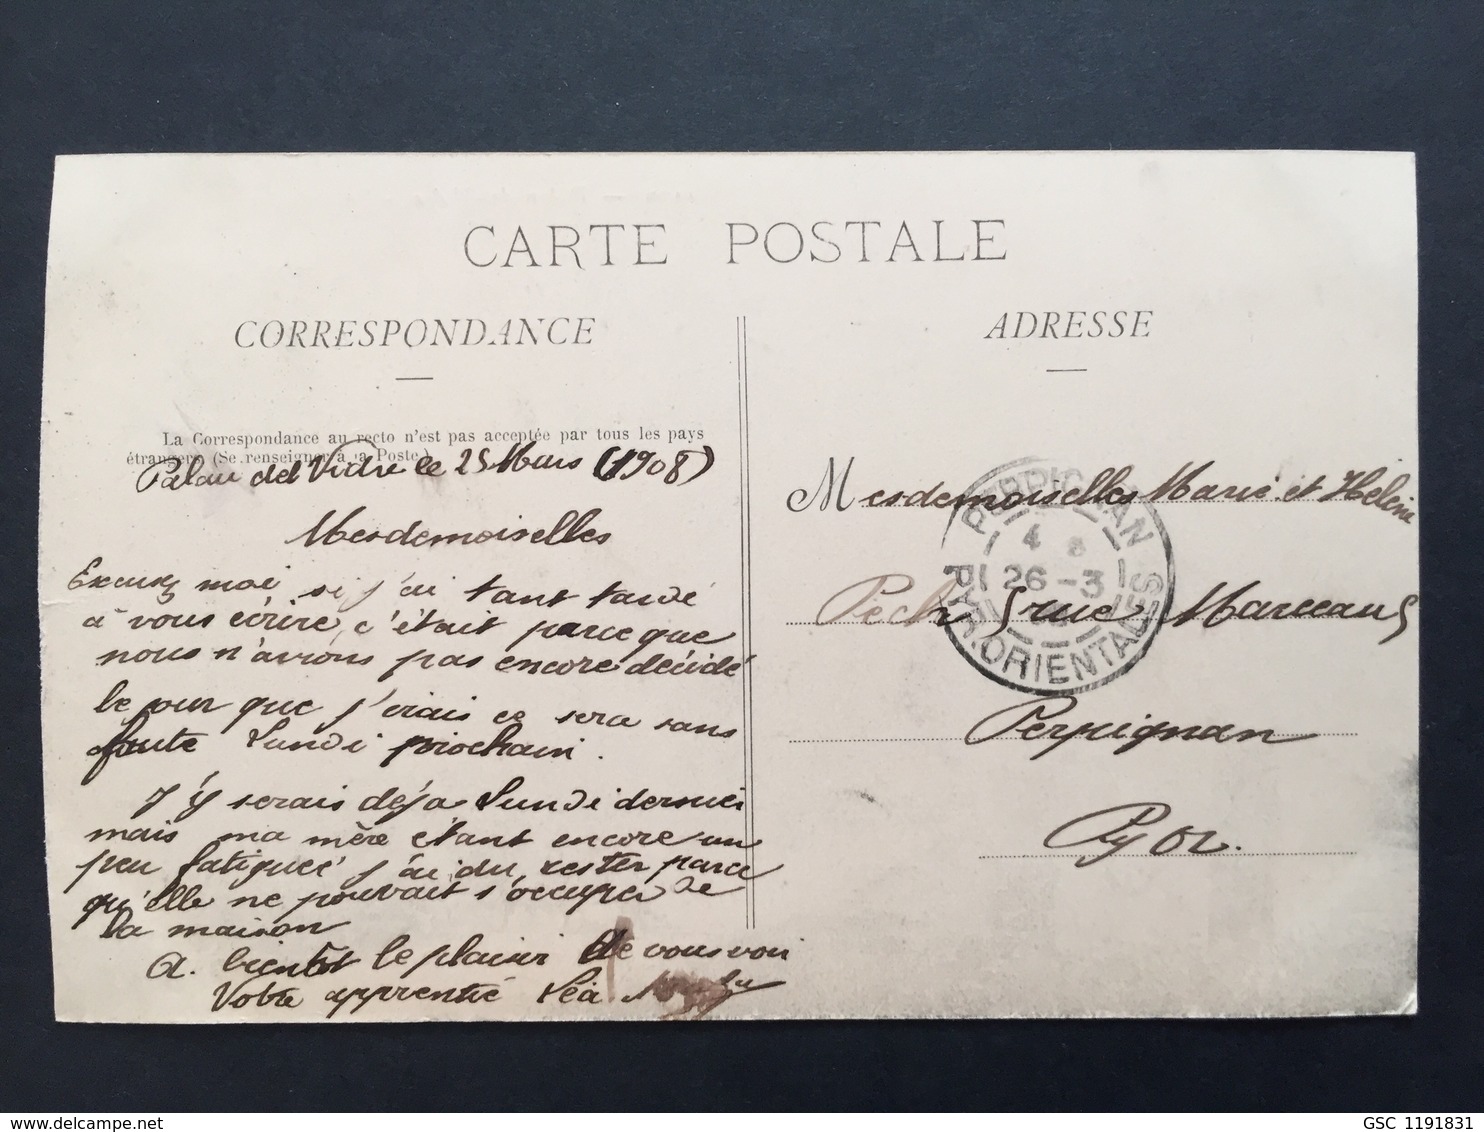 CARTE POSTALE
CORRESPONDANCE
La Correspondance au recto n'est pas acceptée par tous les pays
étrangers (Se renseigner à la Poste)
Palau del Vidre le 25 Mars (1908)
Mesdemoiselles
Excusez moi si j'ai tant tardé
à vous écrire, c'était parce que
nous n'avions pas encore décidé
le jour que j'irais ce sera sans
faute Lundi prochain.
J'y serais déja Lundi dernier
mais ma mère étant encore un
peu fatiguée j'ai du rester parce
qu'elle ne pouvait s'occuper de
la maison
A. bientôt le plaisir de vous voir
Votre apprentie Léa
ADRESSE
Mesdemoiselles Marie et Hélène
Pech rue Marceau 5
Perpignan
Py Or.
PERPIGNAN
4
26 - 3
PYR. ORIENTALES
delcampe.net
GSC 1191831